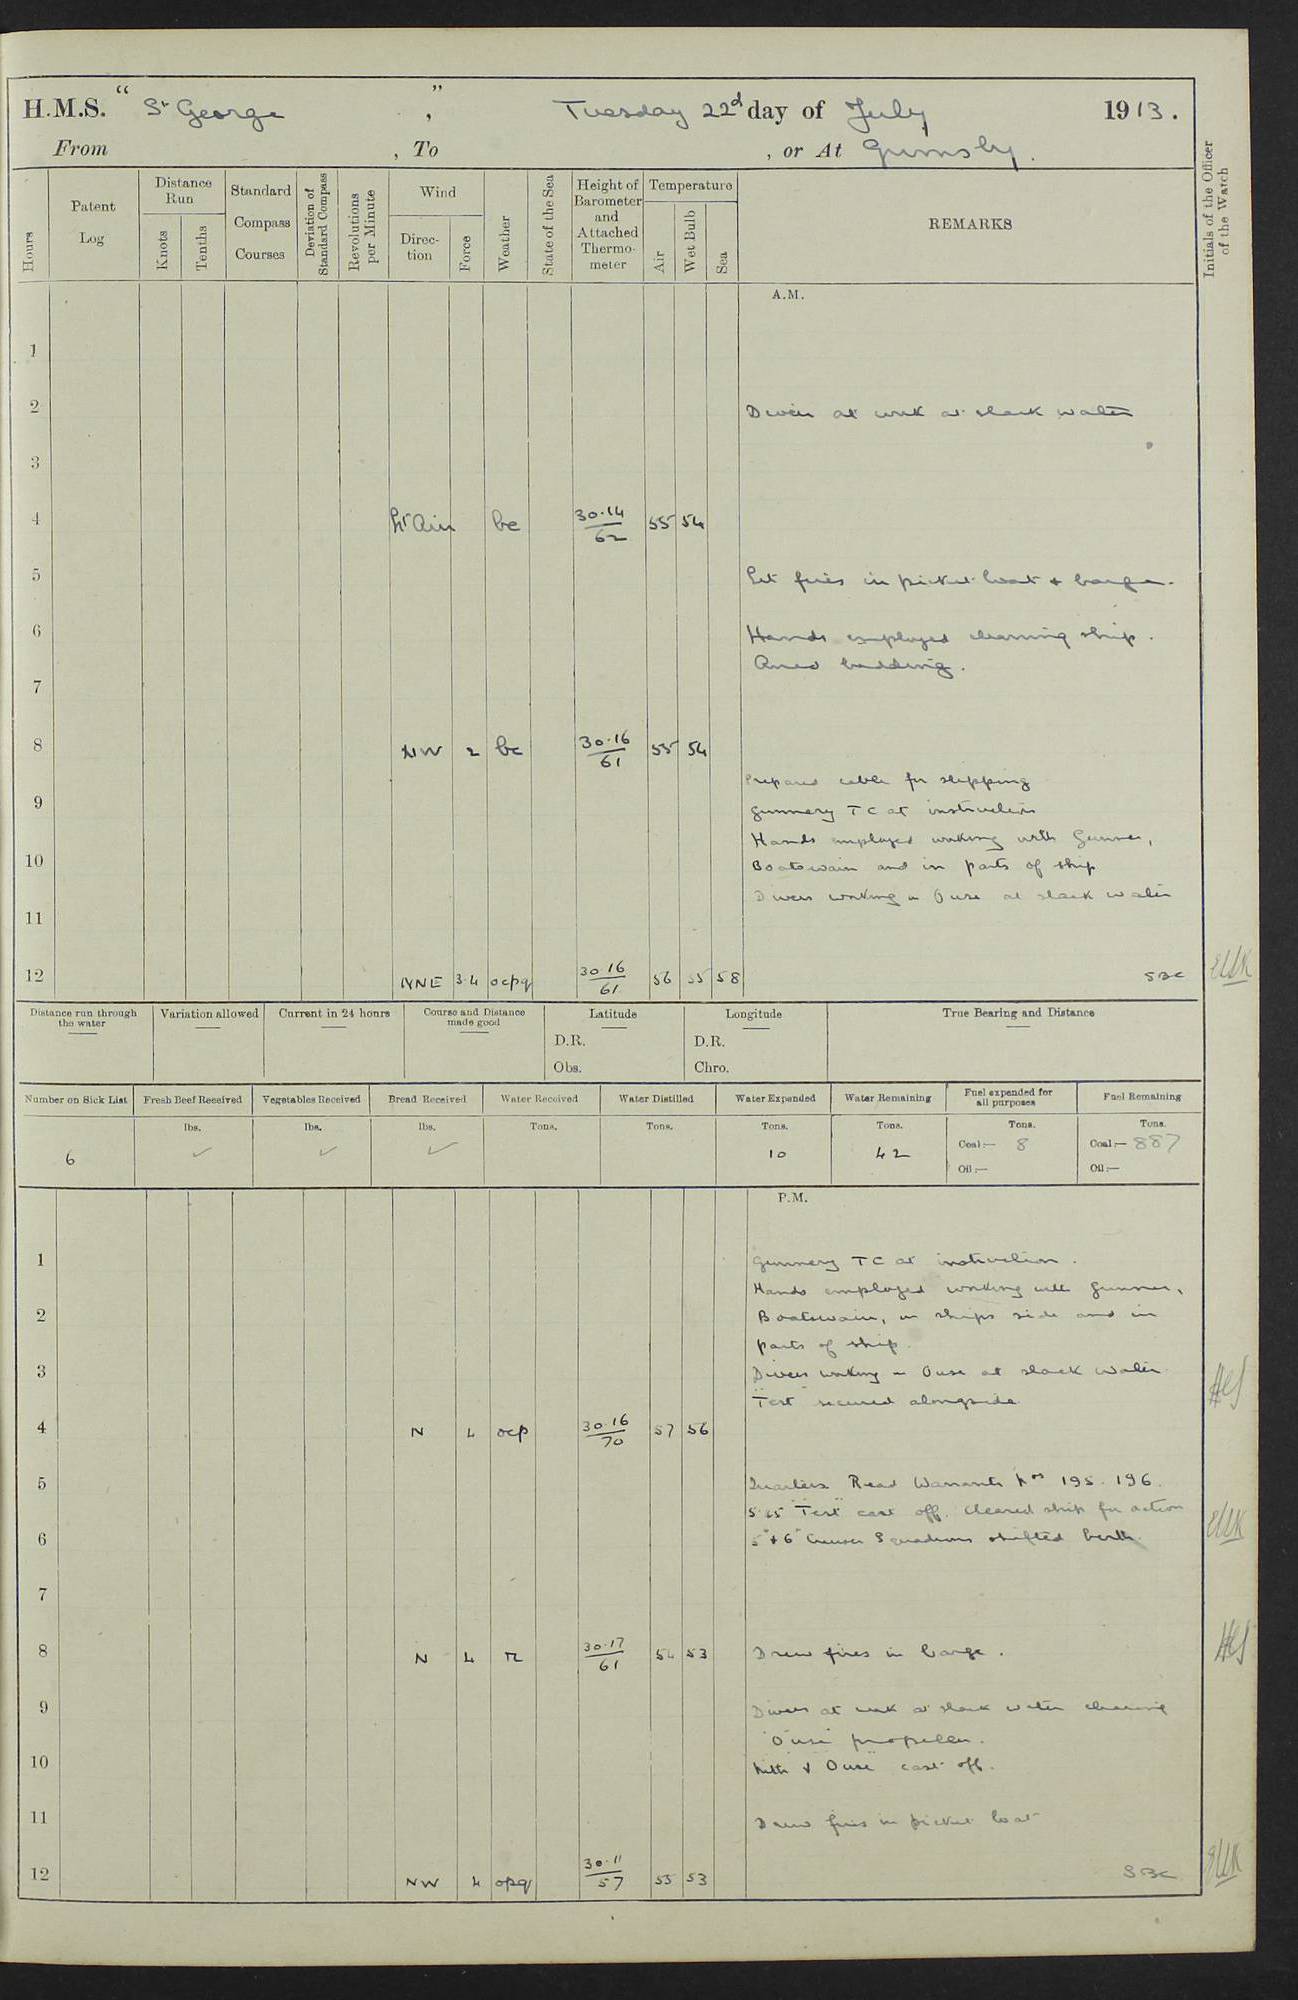 H.M.S. “ St George ”, Tuesday 22d day of July 1913.
From , To , or At Grimsby.
Hours
Patent Log
Distance Run
Knots
Tenths
Standard Compass Courses
Deviation of Standard Compass
Revolutions per Minute
Wind
Direction
Force
Weather
State of the Sea
Height of Barometer and Attached Thermometer
Temperature
Air
Wet Bulb
Sea
REMARKS
Initials of the Officer of the Watch
A.M.
1
2 Divers at work at slack water
3
4 Lt Airs bc 30.14/62 55 54
5 Lit fires in picket boat & barge.
6 Hands employed cleaning ship.
Aired bedding.
7
8 NW 2 bc 30.16/61 55 54
Prepared cable for slipping
9 Gunnery TC at instruction
Hands employed working with Gunner,
10 Boatswain and in parts of ship
Divers working on Ouse at slack water
11
12 NNE 3.4 ocpq 30.16/61 56 55 58 SBC
Distance run through the water
Variation allowed
Current in 24 hours
Course and Distance made good
Latitude
D.R.
Obs.
Longitude
D.R.
Chro.
True Bearing and Distance
Number on Sick List
Fresh Beef Received
Vegetables Received
Bread Received
Water Received
Water Distilled
Water Expended
Water Remaining
Fuel expended for all purposes
Fuel Remaining
lbs. lbs. lbs. Tons. Tons. Tons. Tons. Tons. Tons.
6 ✓ ✓ ✓ 10 42 Coal:— 8 Coal:— 887
Oil:— Oil:—
P.M.
1 Gunnery TC at instruction.
Hands employed working with Gunner,
2 Boatswain, on ships side and in
parts of ship.
3 Divers working on Ouse at slack water
"Test" secured alongside
4 N 4 ocp 30.16/70 57 56
5 Quarters Read Warrants Nos 195. 196.
"Test" cast off. Cleared ship for action
6 5th & 6th Cruiser Squadrons shifted berth.
7
8 N 4 r 30.17/61 54 53 Drew fires in barge.
9 Divers at work at slack water clearing
"Ouse" propeller.
10 & "Ouse" cast off.
11 Drew fires in picket boat
12 NW 4 opq 30.11/57 55 53 SBC